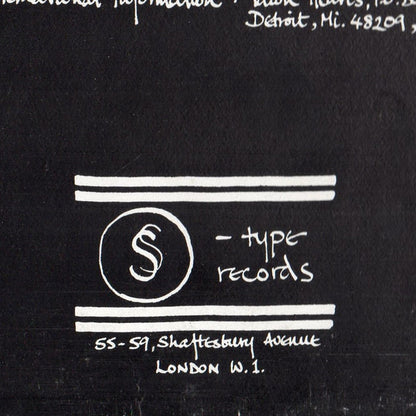 Information -
Detroit, Mi. 48209,
S - type
records
55-59, Shaftesbury Avenue
LONDON W.1.